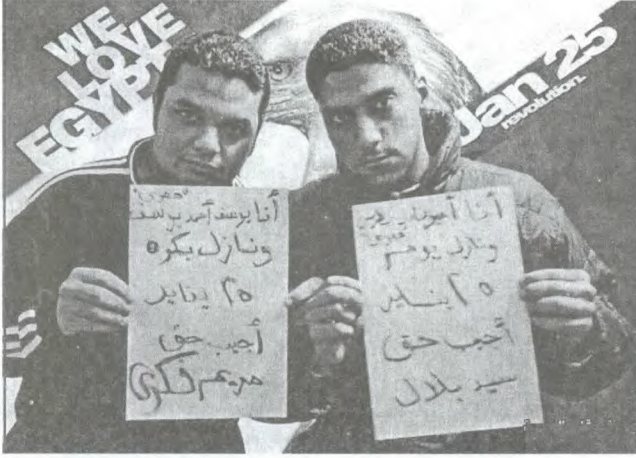 WE
LOVE
EGYPT
Jan 25
revolution.
أنا يوسف أحمد يوسف
ونازل بكره
٢٥ يناير
أجيب حق
مريم فكري
أنا
ونازل يوم
٢٥ يناير
أجيب حق
سيد بلال